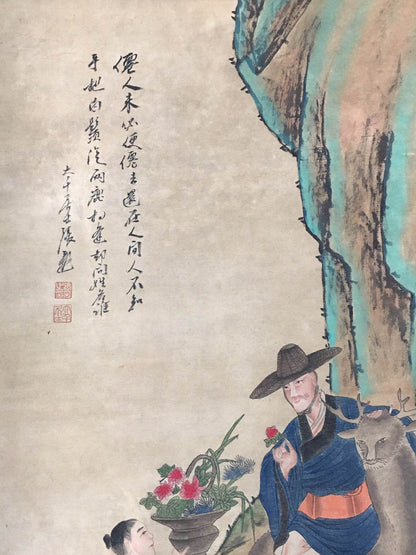 僊人未必便僊去還在人間人不知
手把白鬚從兩鹿相逢却問姓名誰
大千居士張爰